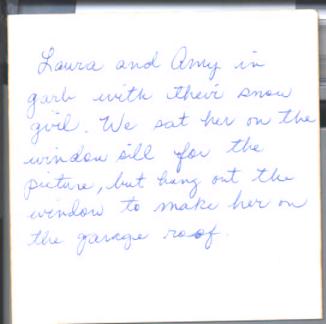 Laura and Amy in
garb with their snow
girl. We sat her on the
window sill for the
picture, but hung out the
window to make her on
the garage roof.